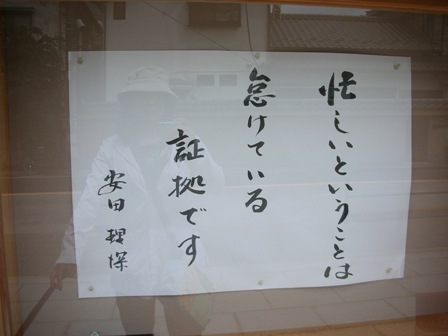 忙しいということは
怠けている
証拠です
安田 理深